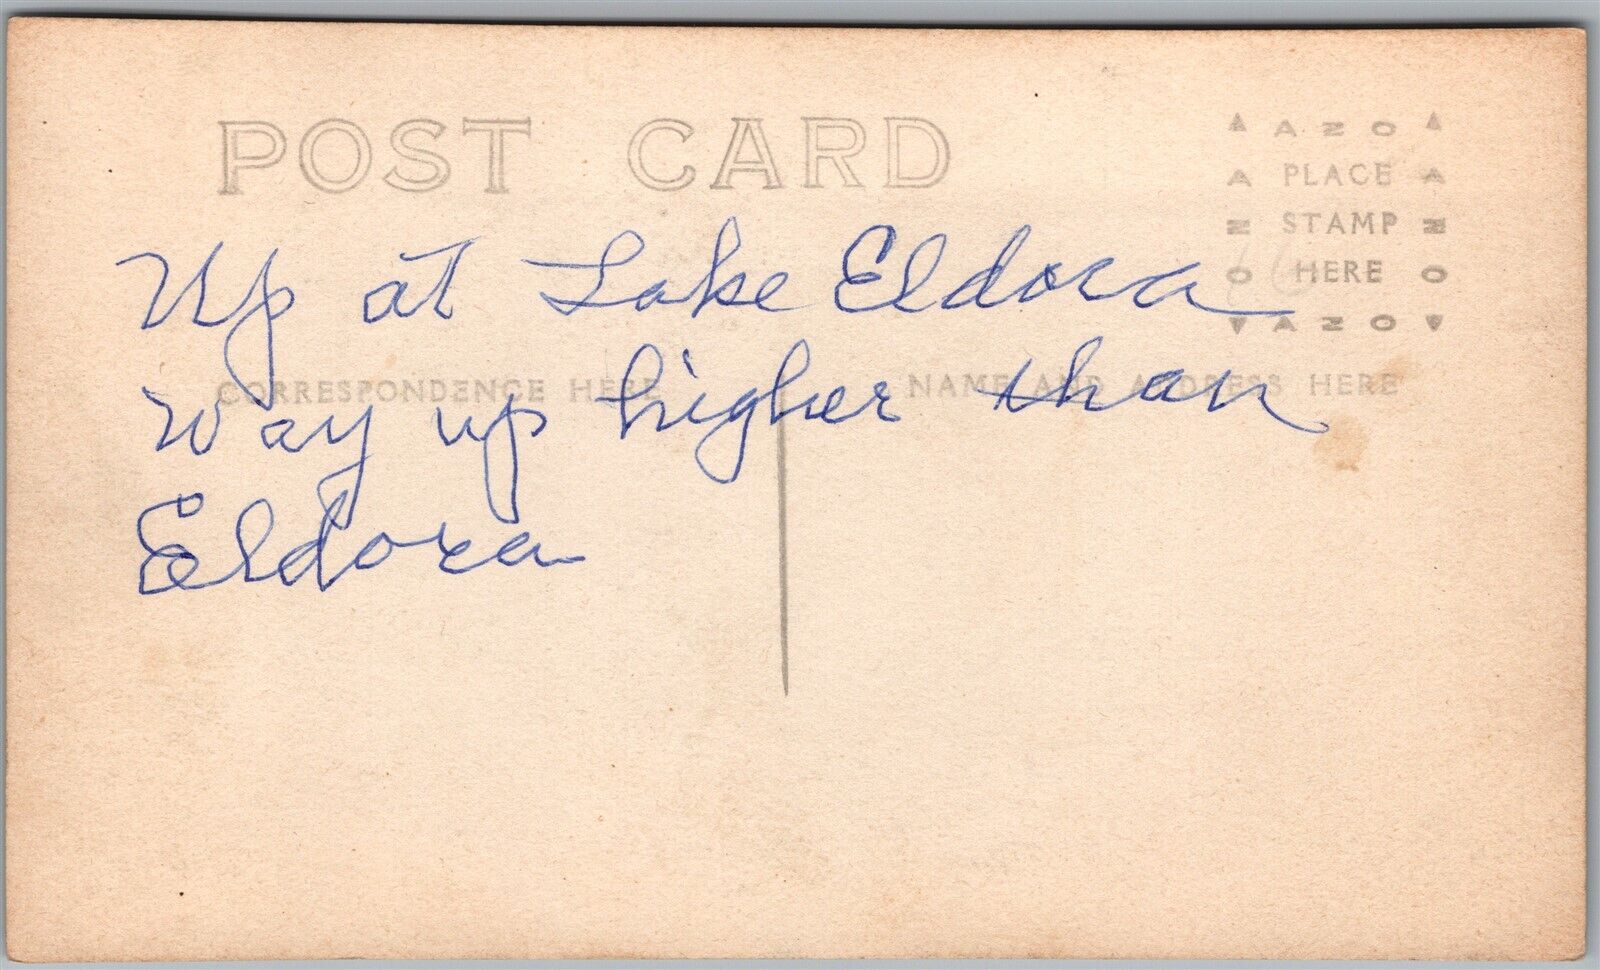 POST CARD
▲ AZO ▲
PLACE
STAMP
HERE
AZO
AZO
▼ AZO ▼
CORRESPONDENCE HERE
NAME AND ADDRESS HERE
Up at Lake Eldora
Way up higher than
Eldora